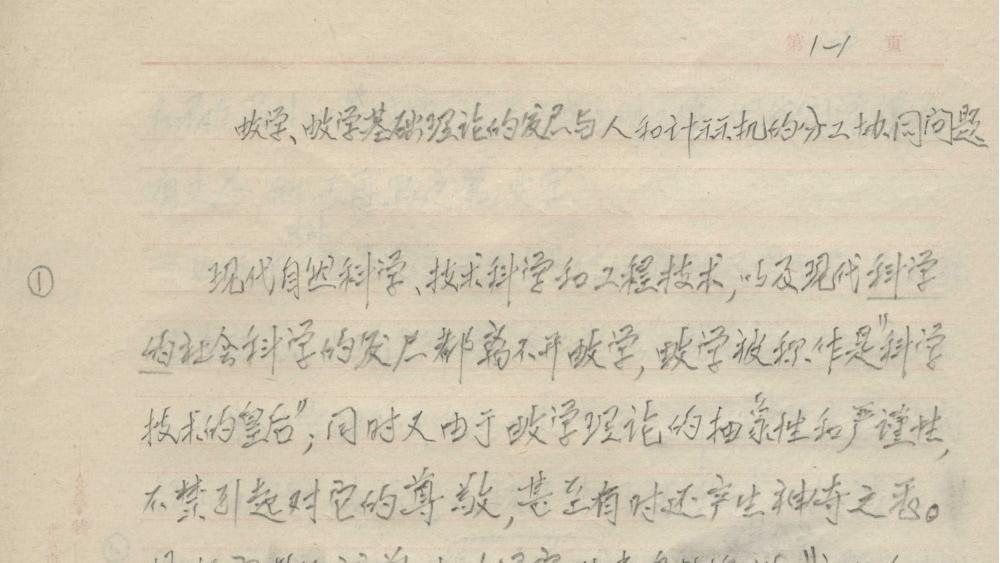 第1-1页
数学、数学基础理论的发展与人和计标机的分工协同问题
① 现代自然科学、技术科学和工程技术,以及现代科学
的社会科学的发展都离不开数学,数学被称作是"科学
技术的皇后";同时又由于数学理论的抽象性和严谨性,
不禁引起对它的尊敬,甚至有时还产生神奇之感。